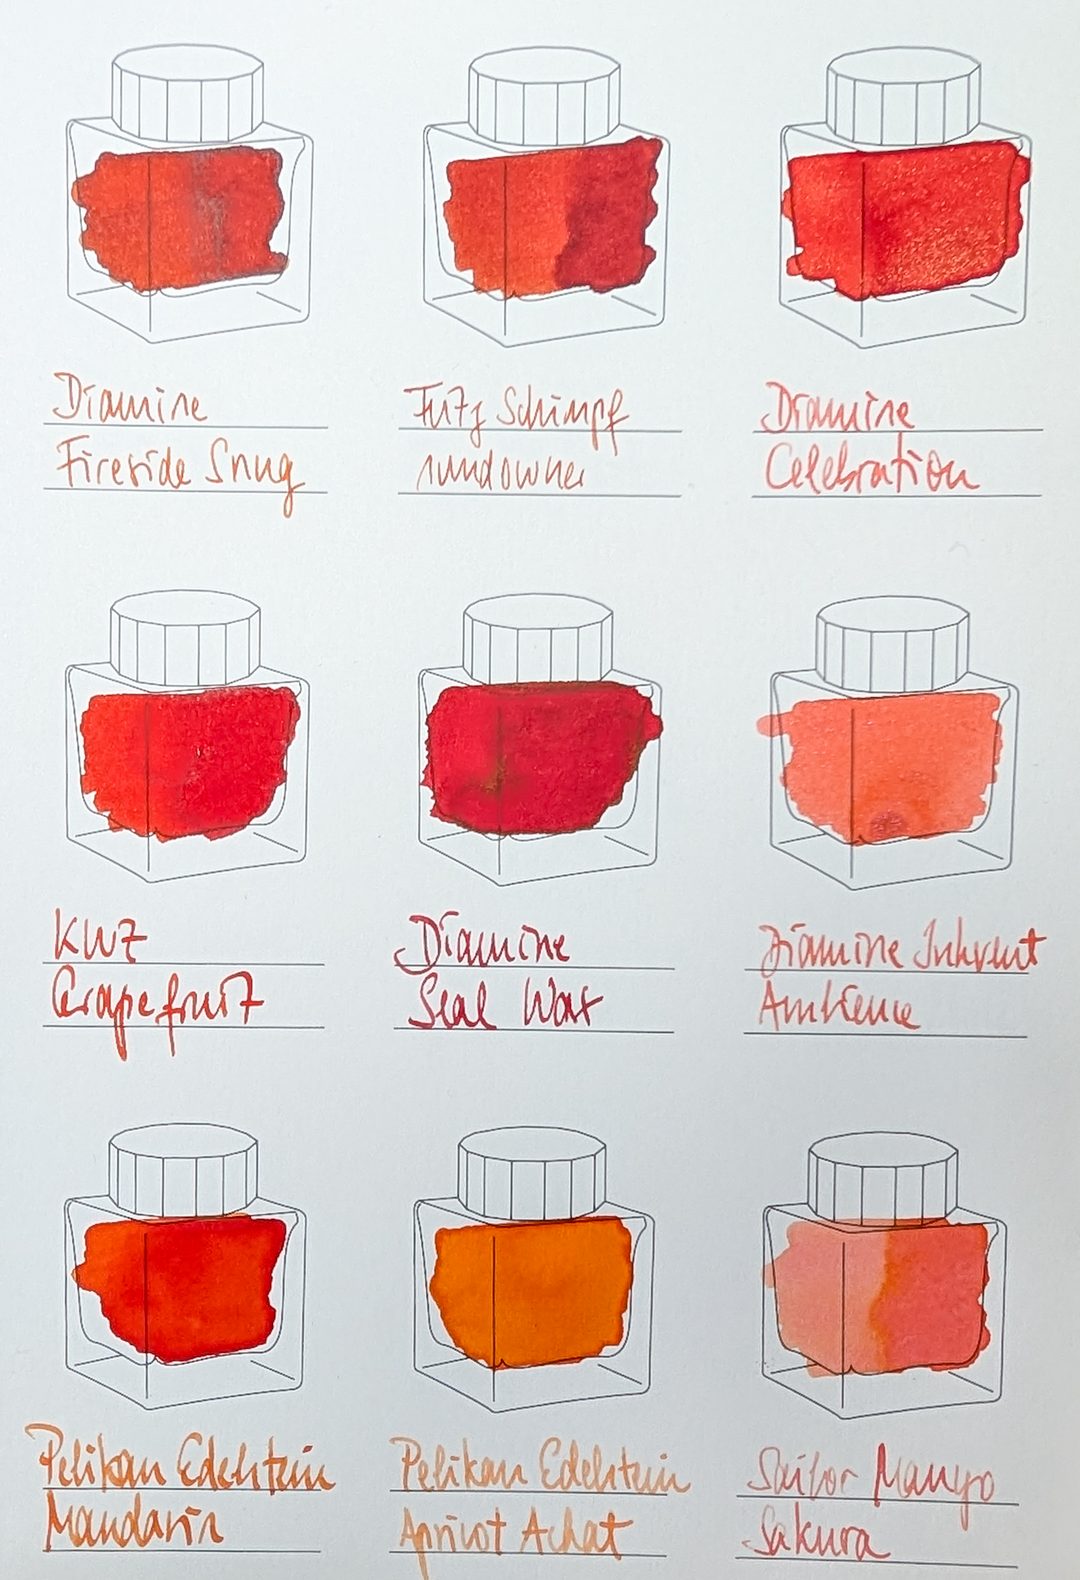 Diamine
Fireside Snug
Fritz Schimpf
sundowner
Diamine
Celebration
KWZ
Grapefruit
Diamine
Seal Wax
Diamine Inkvent
Ambience
Pelikan Edelstein
Mandarin
Pelikan Edelstein
Apricot Achat
Sailor Mango
Sakura